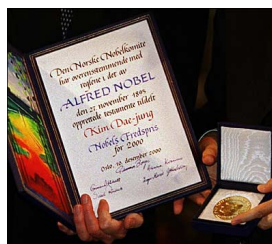 Den Norske Nobelkomite
har overensstemmende med
reglene i det av
ALFRED NOBEL
den 27. november 1895
opprettede testamente tildelt
Kim Dae-jung
Nobels Fredspris
for 2000
Oslo, 10. desember 2000